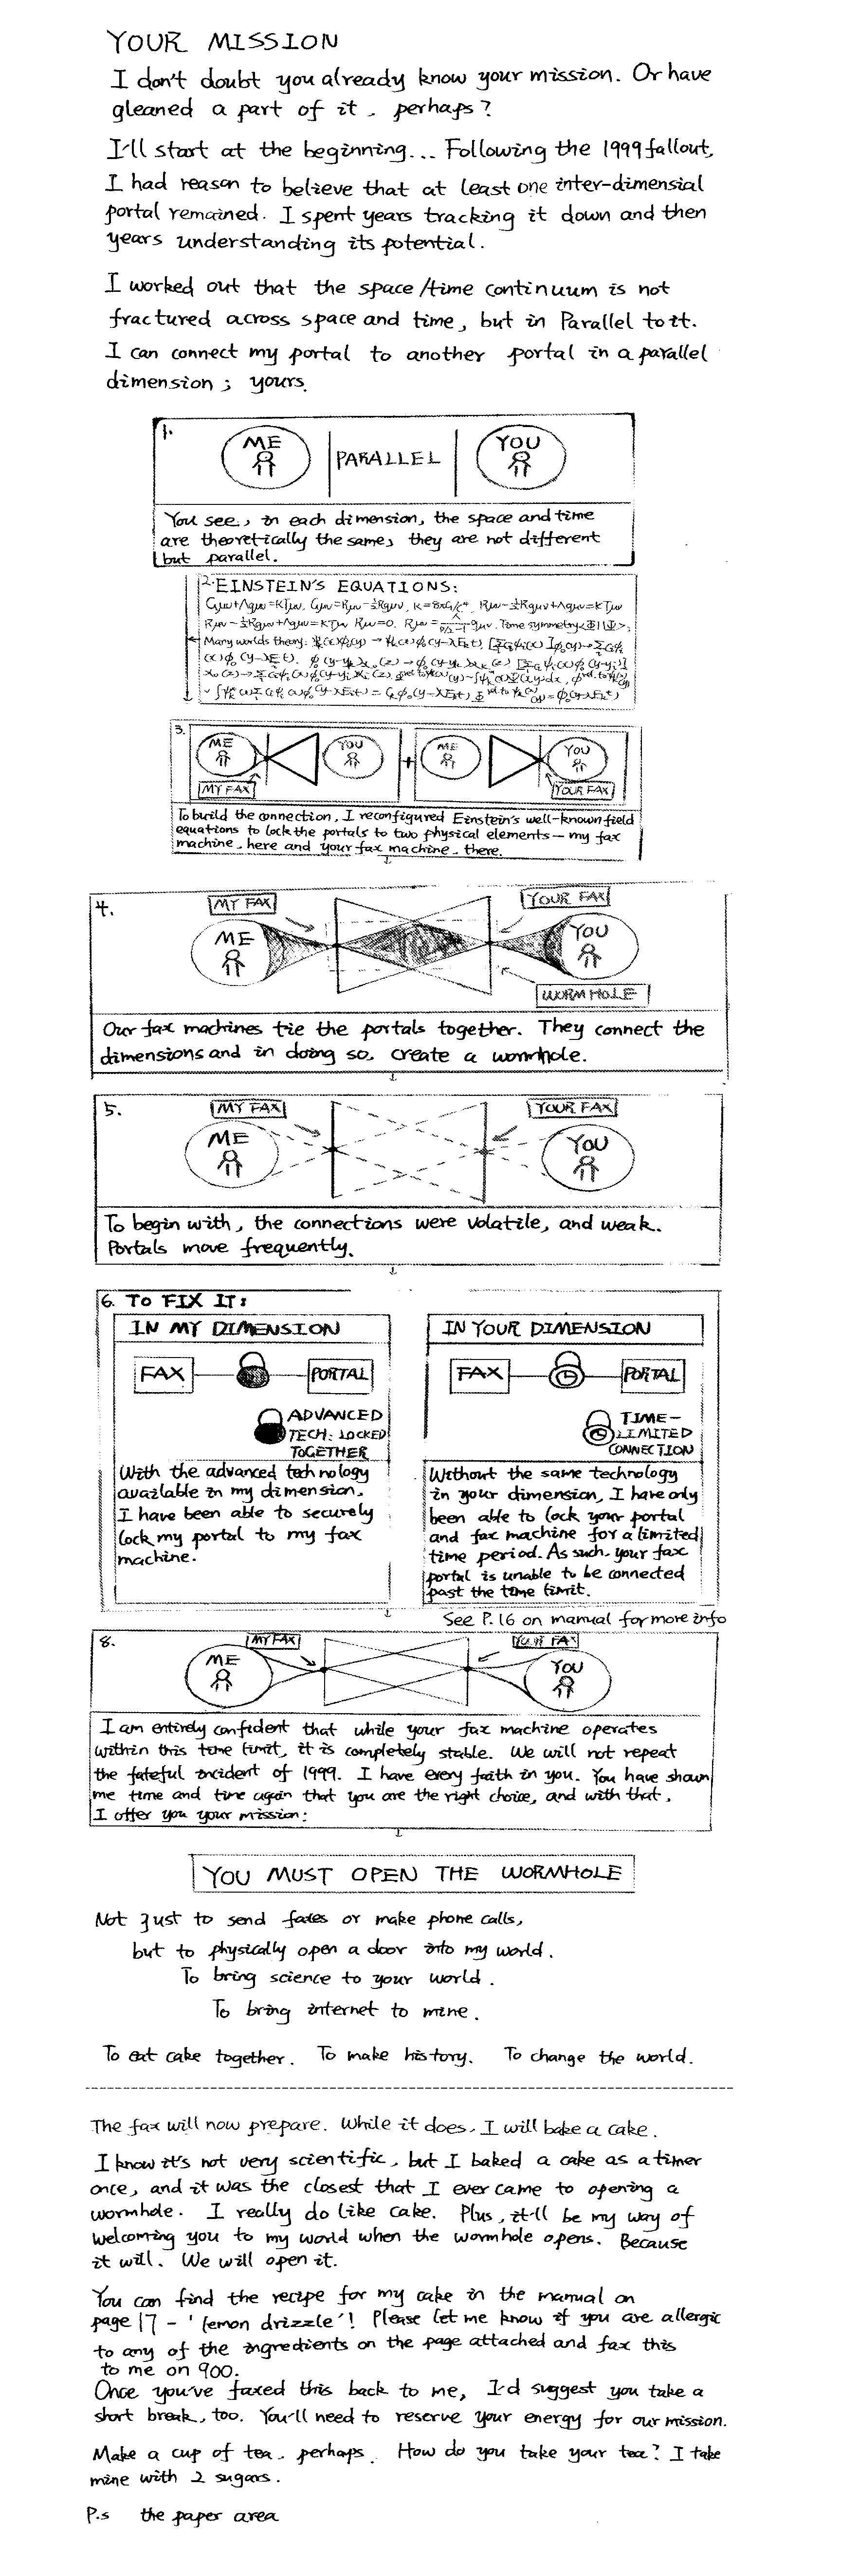 YOUR MISSION
I don't doubt you already know your mission. Or have
gleaned a part of it, perhaps?
I'll start at the beginning... Following the 1999 fallout,
I had reason to believe that at least one inter-dimensial
portal remained. I spent years tracking it down and then
years understanding its potential.
I worked out that the space/time continuum is not
fractured across space and time, but in Parallel to it.
I can connect my portal to another portal in a parallel
dimension; yours.
1.
ME
PARALLEL
YOU
You see, in each dimension, the space and time
are theoretically the same, they are not different
but parallel.
2. EINSTEIN'S EQUATIONS:
Time symmetry
Many worlds theory:
3.
ME
YOU
+
ME
YOU
MY FAX
YOUR FAX
To build the connection, I reconfigured Einstein's well-known field
equations to lock the portals to two physical elements - my fax
machine, here and your fax machine, there.
4.
MY FAX
YOUR FAX
ME
YOU
WORMHOLE
Our fax machines tie the portals together. They connect the
dimensions and in doing so, create a wormhole.
5.
MY FAX
YOUR FAX
ME
YOU
To begin with, the connections were volatile, and weak.
Portals move frequently.
6. TO FIX IT:
IN MY DIMENSION
FAX
PORTAL
ADVANCED
TECH: LOCKED
TOGETHER
With the advanced technology
available in my dimension,
I have been able to securely
lock my portal to my fax
machine.
IN YOUR DIMENSION
FAX
PORTAL
TIME-
LIMITED
CONNECTION
Without the same technology
in your dimension, I have only
been able to lock your portal
and fax machine for a limited
time period. As such, your fax
portal is unable to be connected
past the time limit.
See P.16 on manual for more info
8.
MY FAX
YOUR FAX
ME
YOU
I am entirely confident that while your fax machine operates
within this time limit, it is completely stable. We will not repeat
the fateful incident of 1999. I have every faith in you. You have shown
me time and time again that you are the right choice, and with that,
I offer you your mission:
YOU MUST OPEN THE WORMHOLE
Not just to send faxes or make phone calls,
but to physically open a door into my world.
To bring science to your world.
To bring internet to mine.
To eat cake together. To make history. To change the world.
The fax will now prepare. While it does, I will bake a cake.
I know it's not very scientific, but I baked a cake as a timer
once, and it was the closest that I ever came to opening a
wormhole. I really do like cake. Plus, it'll be my way of
welcoming you to my world when the wormhole opens. Because
it will. We will open it.
You can find the recipe for my cake in the manual on
page 17 - 'lemon drizzle'! Please let me know if you are allergic
to any of the ingredients on the page attached and fax this
to me on 900.
Once you've faxed this back to me, I'd suggest you take a
short break, too. You'll need to reserve your energy for our mission.
Make a cup of tea, perhaps. How do you take your tea? I take
mine with 2 sugars.
P.s the paper area